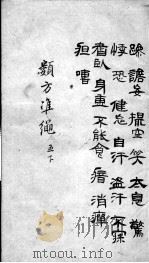 躁 譫妄 撮空 笑 太息 驚
悸 恐 健忘 自汗 盜汗
臥 身重 不能食 瘖 消癉
疸 嘈
類方準繩 五下